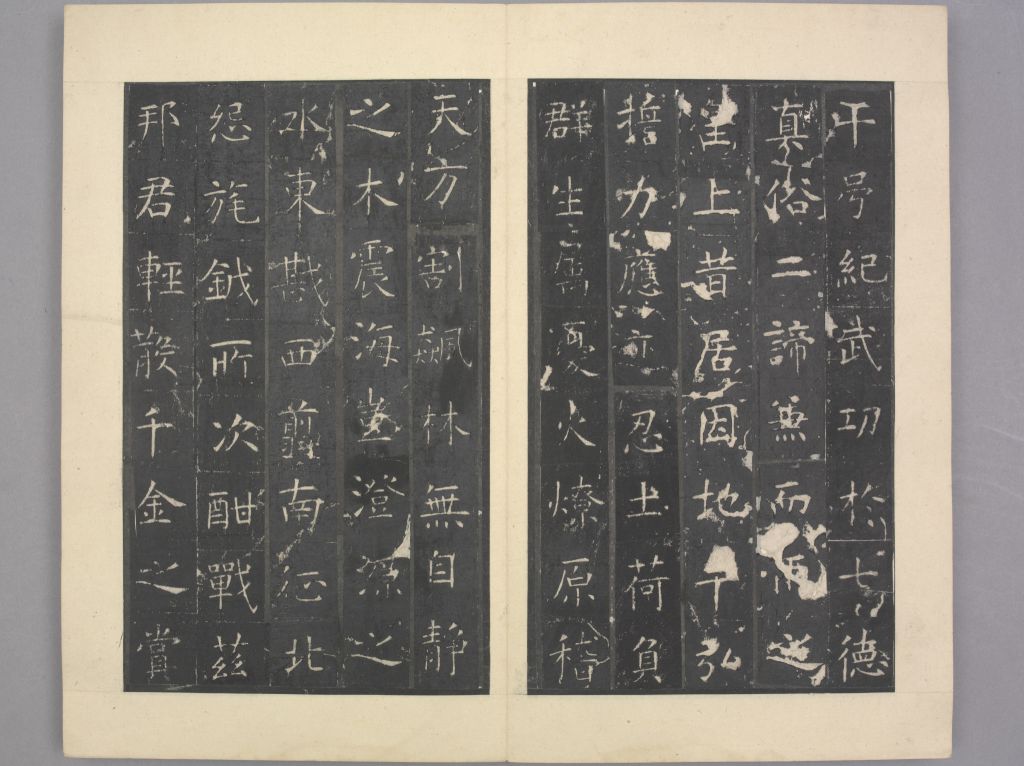 干紀武功於七德
真俗二諦兼而
上昔居因地于弘
力應忍土荷負
群生屬憂火燎原稽
天方割飆林無自靜
之木震海無澄源之
水東戡西翦南征北
怨旄鉞所次酣戰茲
邦君輕散千金之賞